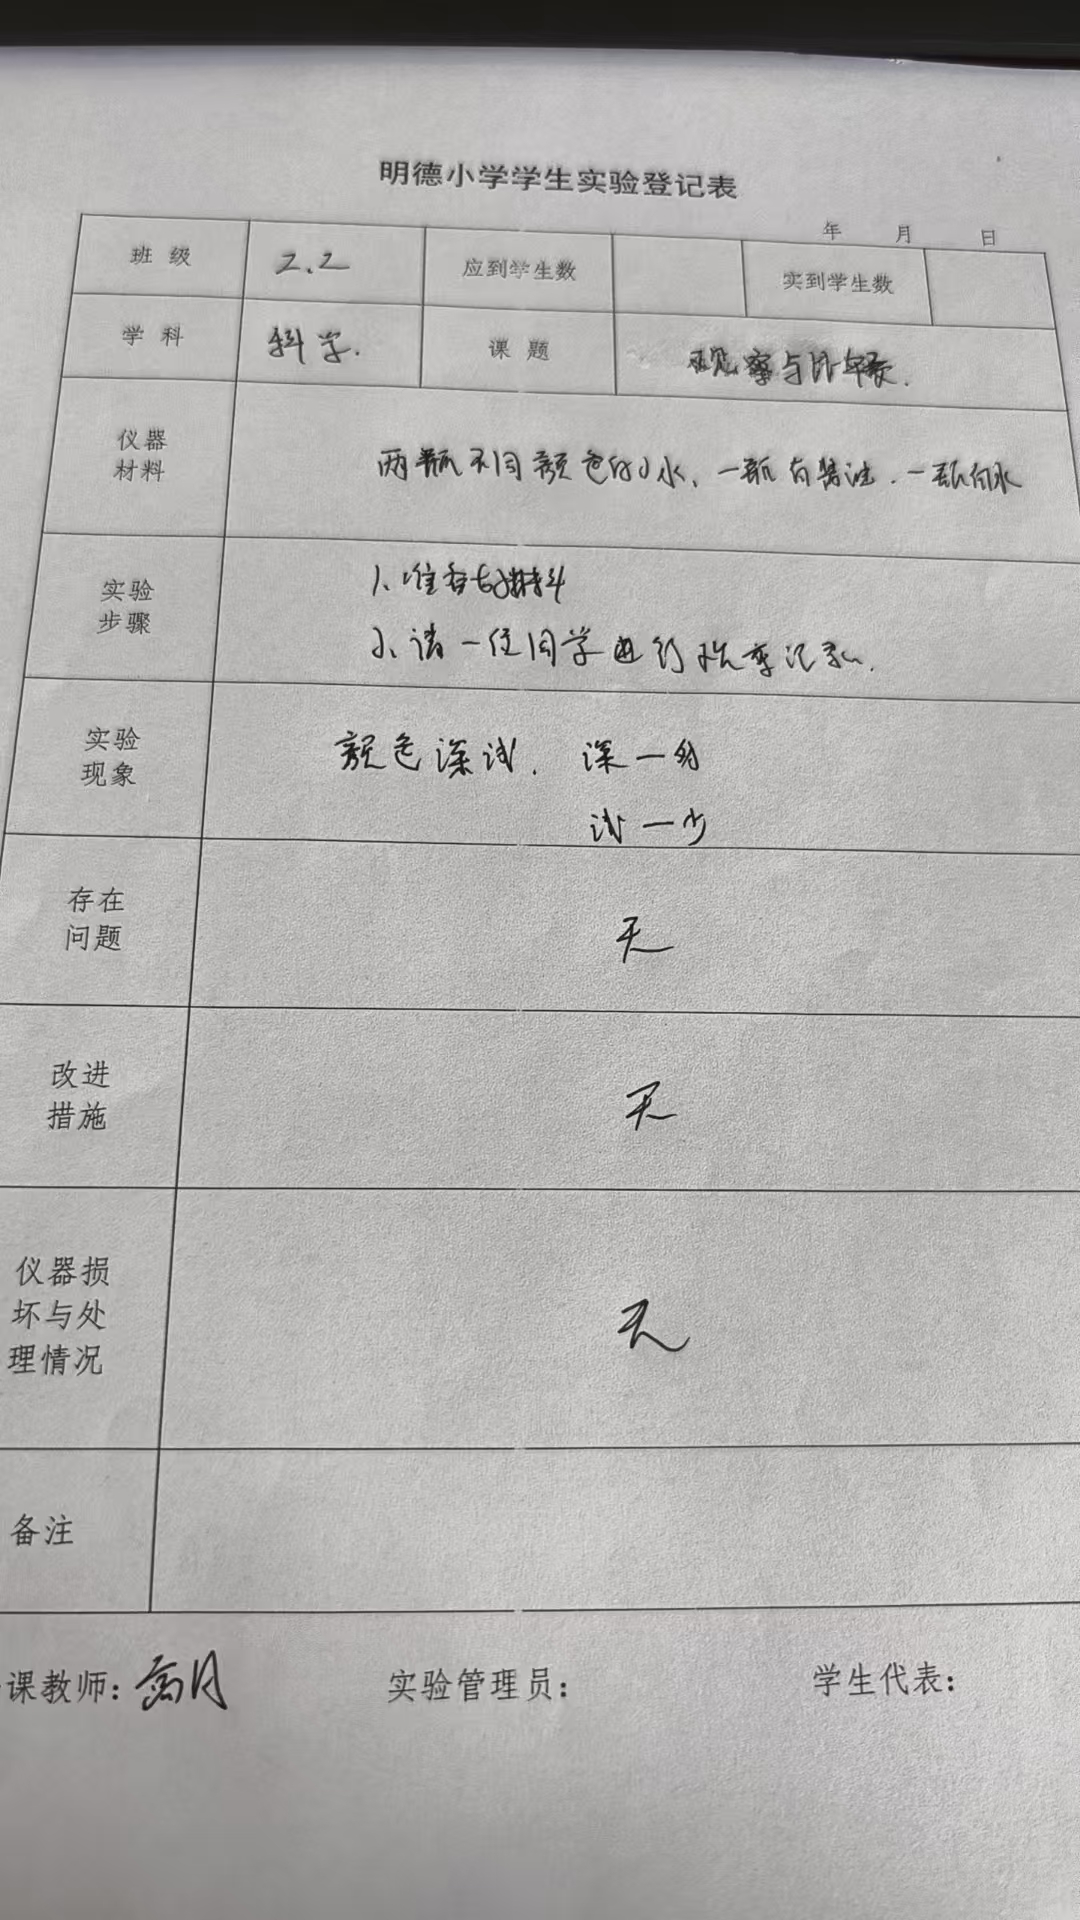 明德小学学生实验登记表
年 月 日
班 级 2.2 应到学生数 实到学生数
学 科 科学. 课 题 观察与比较.
仪器
材料
两瓶不同颜色的水、一瓶有酱油.一瓶白水
实验
步骤
1、准备好材料
2、请一位同学进行观察记录.
实验
现象
颜色深浅. 深一多
浅一少
存在
问题
无
改进
措施
无
仪器损
坏与处
理情况
无
备注
课教师: 实验管理员: 学生代表: